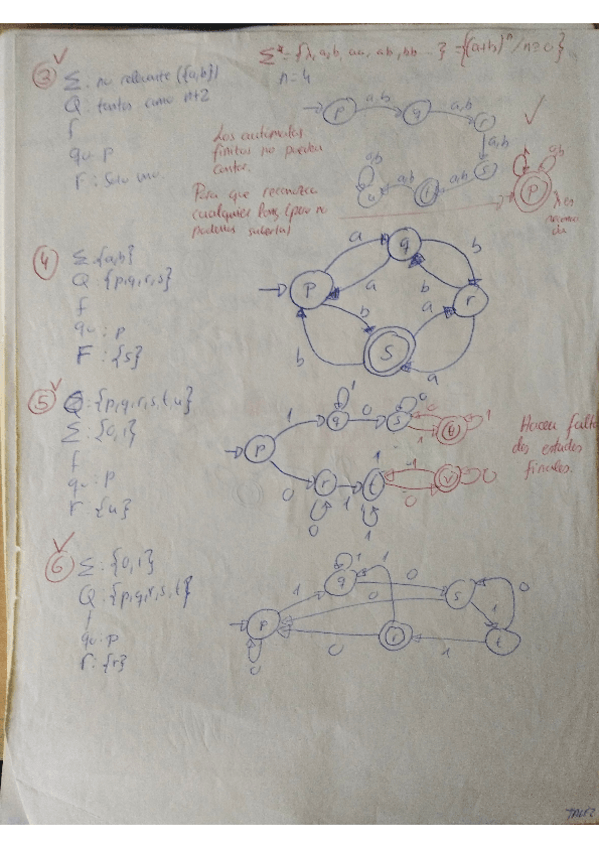 Σ* = {λ, a, b, aa, ab, bb ...} = {(a+b)ⁿ / n ≥ 0}
③ Σ: no relevante ({a,b})
n = 4
Q: tantos como n+2
f
q₀: p
F: Solo uno.
p a,b q a,b r
a,b
u a,b t a,b s
a,b
Los autómatas
finitos no pueden
contar.
Para que reconozca
cualquier long (pero no
podemos saberla)
p
a,b
λ es
④ Σ {a,b}
Q: {p,q,r,s}
f
q₀: p
F: {s}
p a q b r
a b
b a
b s a
⑤ Q: {p,q,r,s,t,u}
Σ: {0,1}
f
q₀: p
F: {u}
p 1 q 0 s 0 u 1
1 0 1
0 r 1 t 1 v 0
0 1 0
Hacen falta
dos estados
finales.
⑥ Σ: {0,1}
Q: {p,q,r,s,t}
f
q₀: p
F: {r}
p 1 q 0 s 0
1 1 0 1
0 0 r 1 t